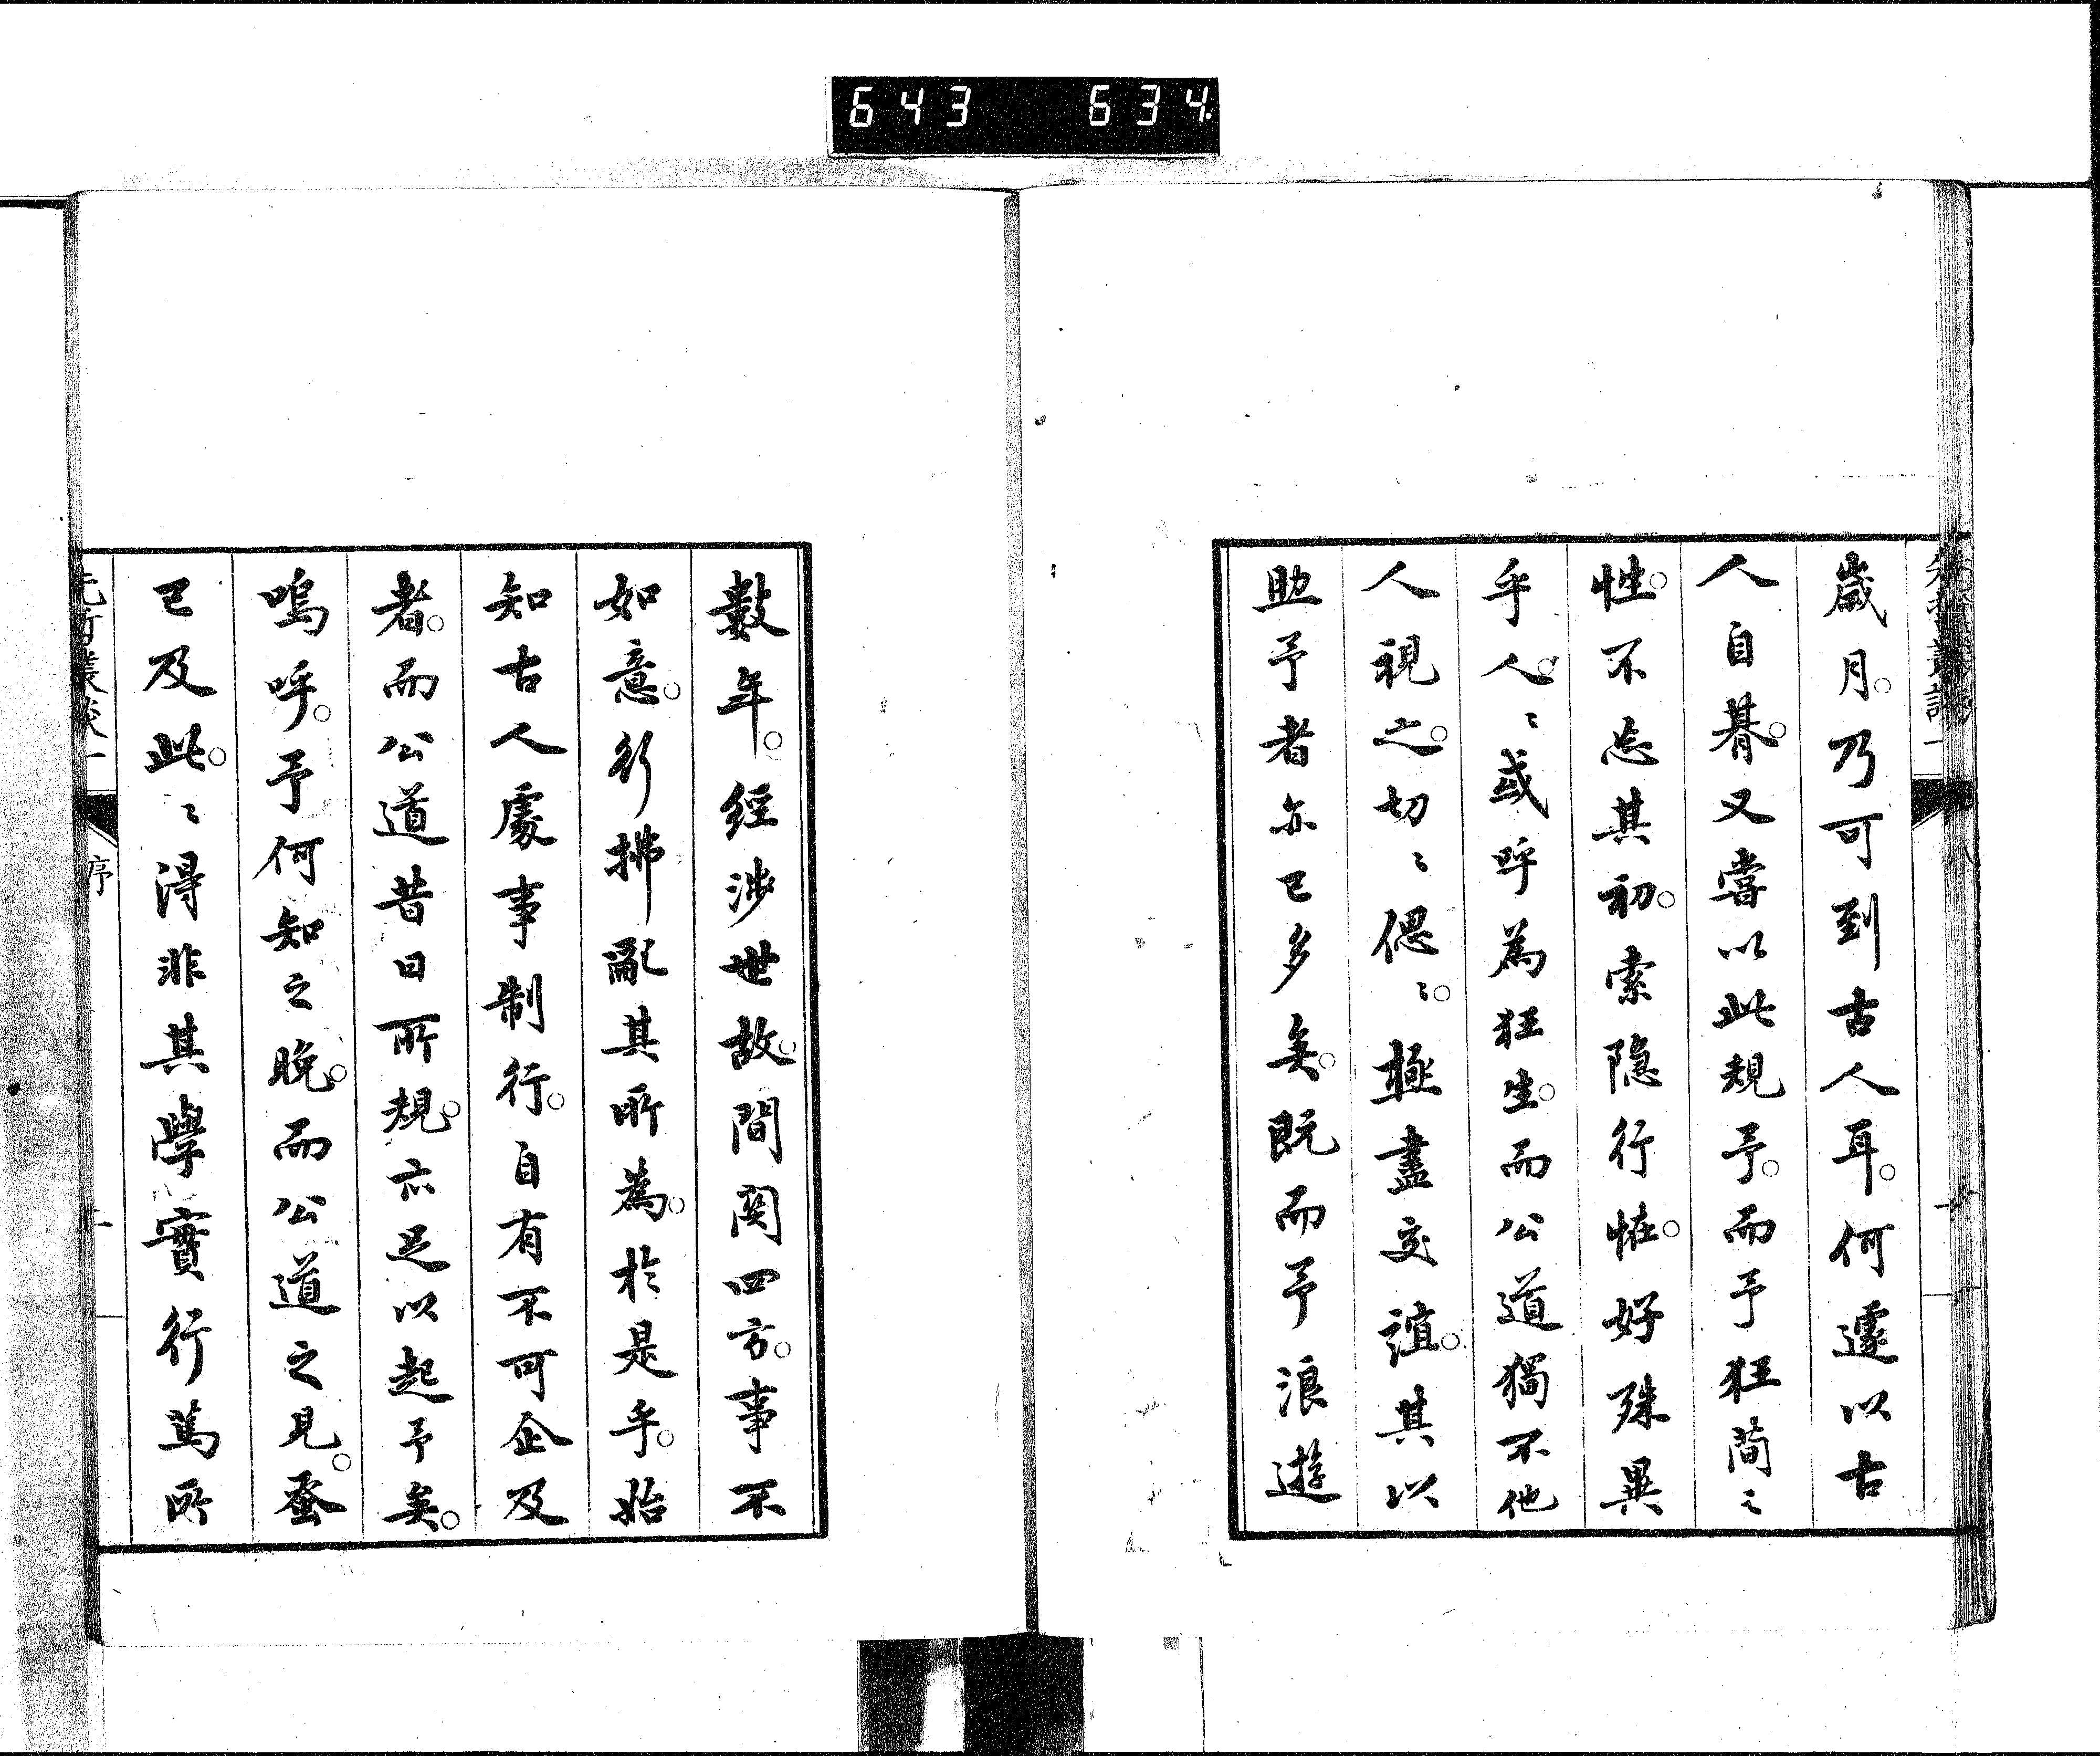 643 634.
歳月。乃可到古人耳。何遽以古
人自朞。又嘗以此規予。而予狂簡之
性。不忘其初。索隐行恠。好殊異
乎人。〻或呼為狂生。而公道獨不他
人視之。切〻偲〻。極盡交誼。其以
助予者亦已多矣。既而予浪遊
數年。經涉世故。間関四方。事不
如意。行拂亂其所為。於是乎。始
知古人處事制行。自有不可企及
者。而公道昔日所規。亦足以起予矣。
嗚呼。予何知之晚。而公道之見。蚤
已及此。〻得非其學實行篤所
先哲叢談一
序